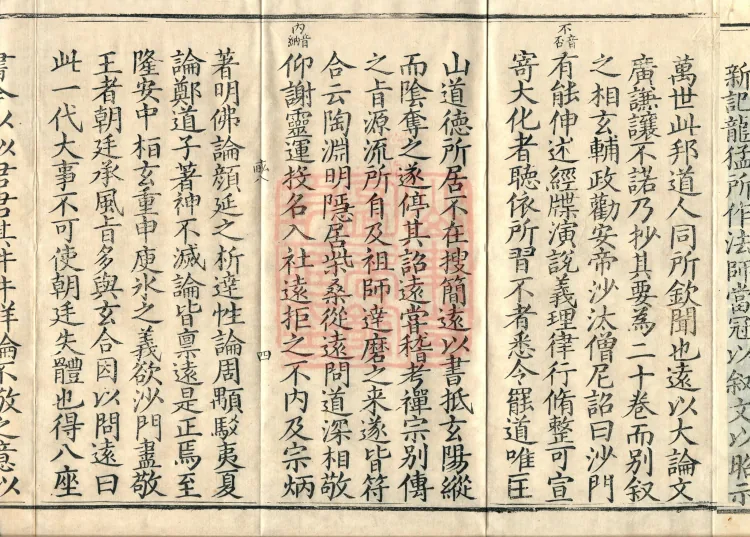 新記龍猛所作法師當冠以經文以昭示
萬世此邦道人同所欽聞也遠以大論文
廣謙讓不諾乃抄其要為二十卷而別叙
之相玄輔政勸安帝沙汰僧尼詔曰沙門
不音否
有能伸述經牒演說義理律行脩整可宣
寄大化者聽依所習不者悉令罷道唯匡
山道德所居不在搜簡遠以書抵玄陽縱
而陰奪之遂停其詔遠甞稽考禪宗別傳
之旨源流所自及祖師達磨之来遂皆符
合云陶淵明隱居柴桑從遠問道深相敬
內音納
仰謝靈運投名入社遠拒之不内及宗炳
四
著明佛論顔延之析達性論周顒駁夷夏
論鄭道子著神不滅論皆禀遠是正焉至
隆安中相玄重申庾氷之義欲沙門盡敬
王者朝廷承風旨多與玄合因以問遠曰
此一代大事不可使朝廷失體也得八座
詳論不敬之意以